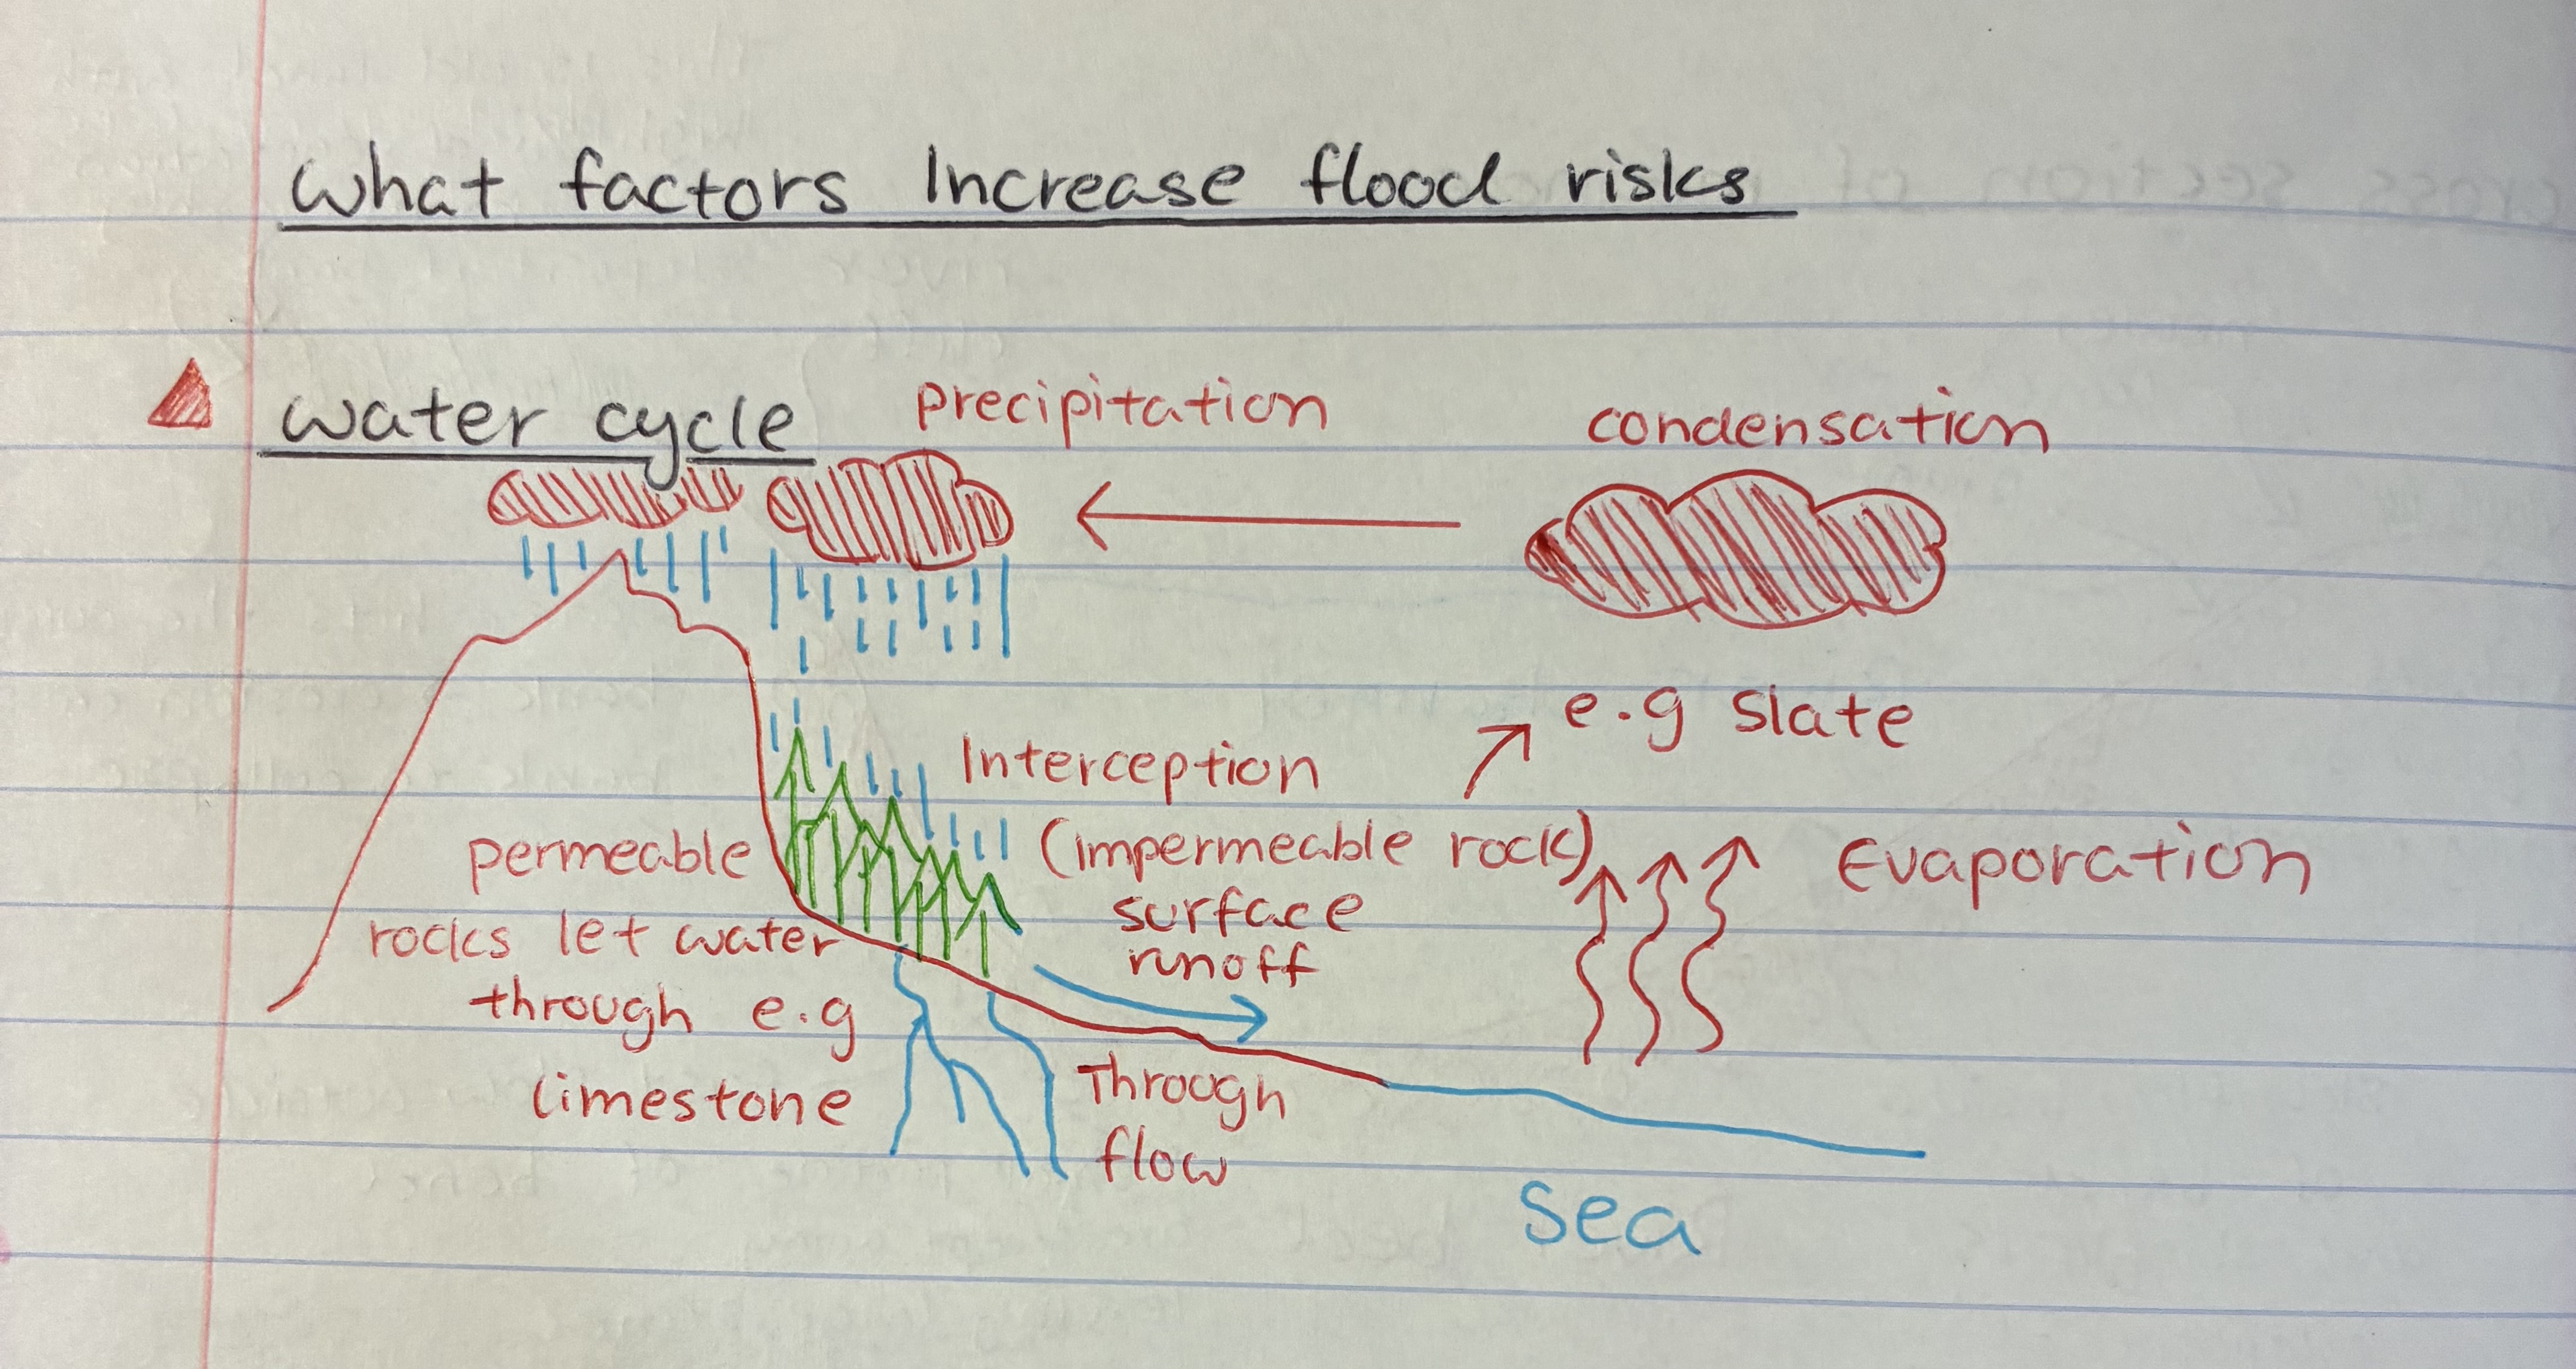 What factors Increase flood risks
water cycle
precipitation
condensation
e.g slate
Interception
(impermeable rock)
surface
runoff
Evaporation
permeable
rocks let water
through e.g
limestone
Through
flow
Sea